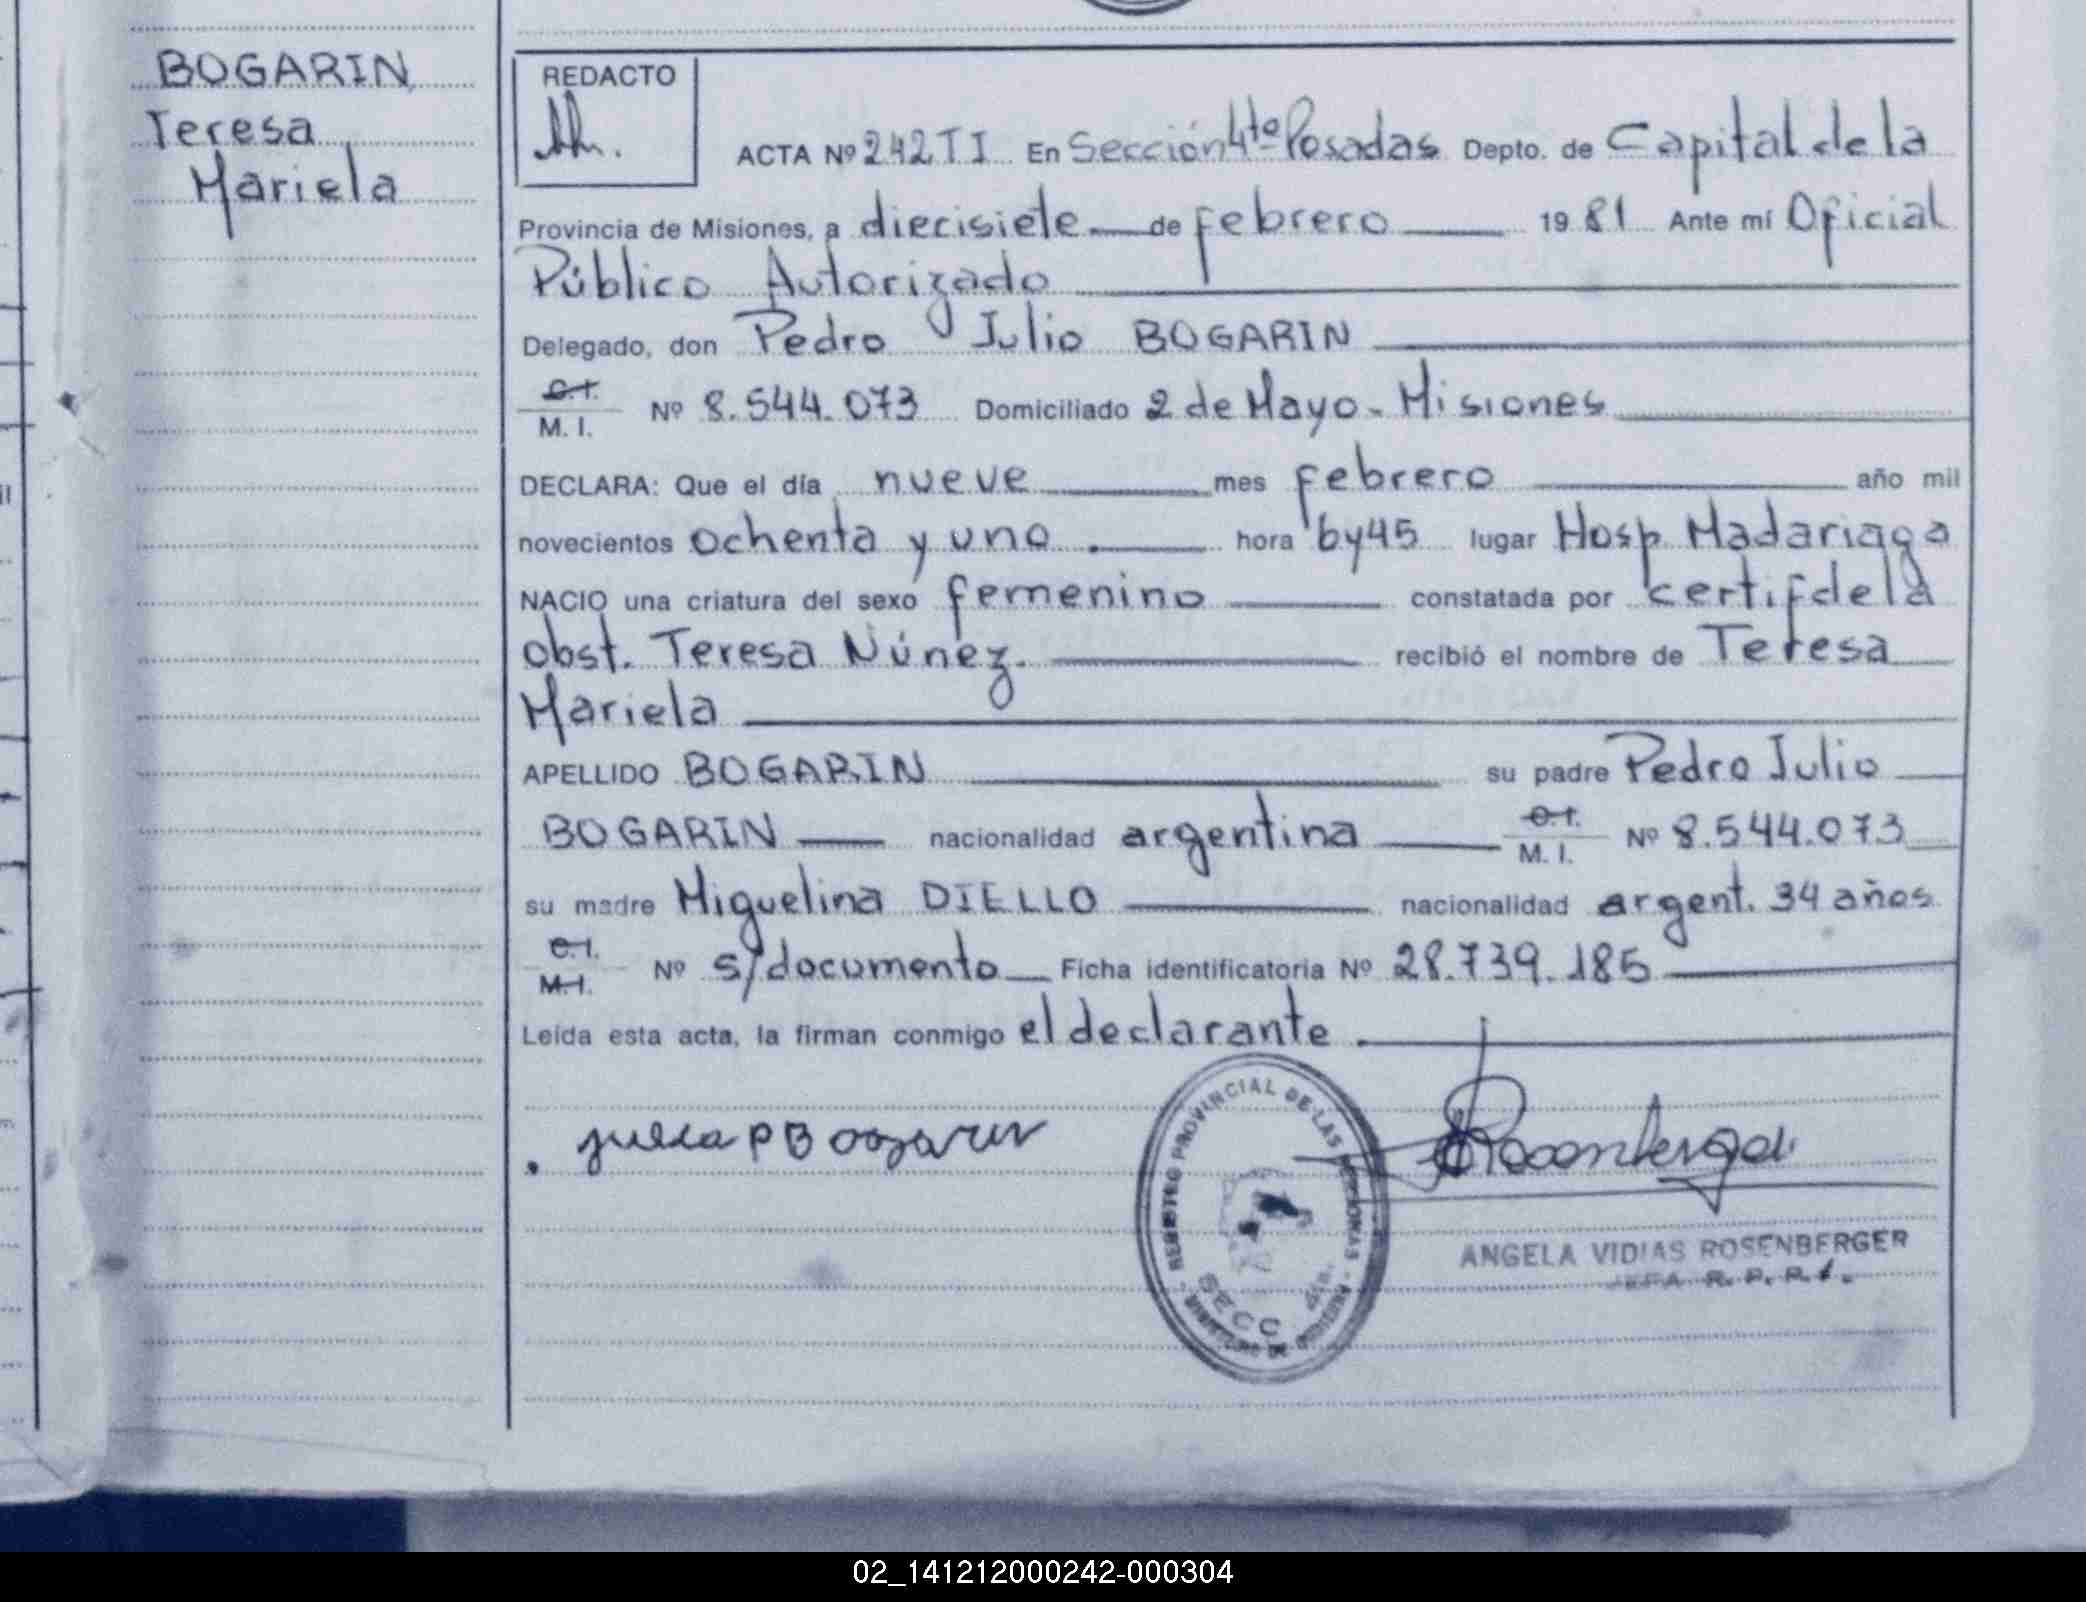 BOGARIN
Teresa
Mariela
REDACTO
ACTA Nº 242 T I En Sección 4ta Posadas Depto. de Capital de la
Provincia de Misiones, a diecisiete de febrero 19 81 Ante mí Oficial
Público Autorizado
Delegado, don Pedro Julio BOGARIN
C.I.
M. I. Nº 8.544.073 Domiciliado 2 de Mayo - Misiones
DECLARA: Que el día nueve mes febrero año mil
novecientos ochenta y uno hora 6y45 lugar Hosp Madariaga
NACIO una criatura del sexo femenino constatada por certif de la
obst. Teresa Núñez. recibió el nombre de Teresa
Mariela
APELLIDO BOGARIN su padre Pedro Julio
BOGARIN nacionalidad argentina C.I.
M. I. Nº 8.544.073
su madre Miguelina DIELLO nacionalidad argent. 34 años.
C.I.
M.I. Nº s/documento Ficha identificatoria Nº 28.739.185
Leída esta acta, la firman conmigo el declarante.
REGISTRO PROVINCIAL DE LAS PERSONAS
SECC 4ta.
ANGELA VIDIAS ROSENBERGER
JEFA R. P. P.
02_141212000242-000304